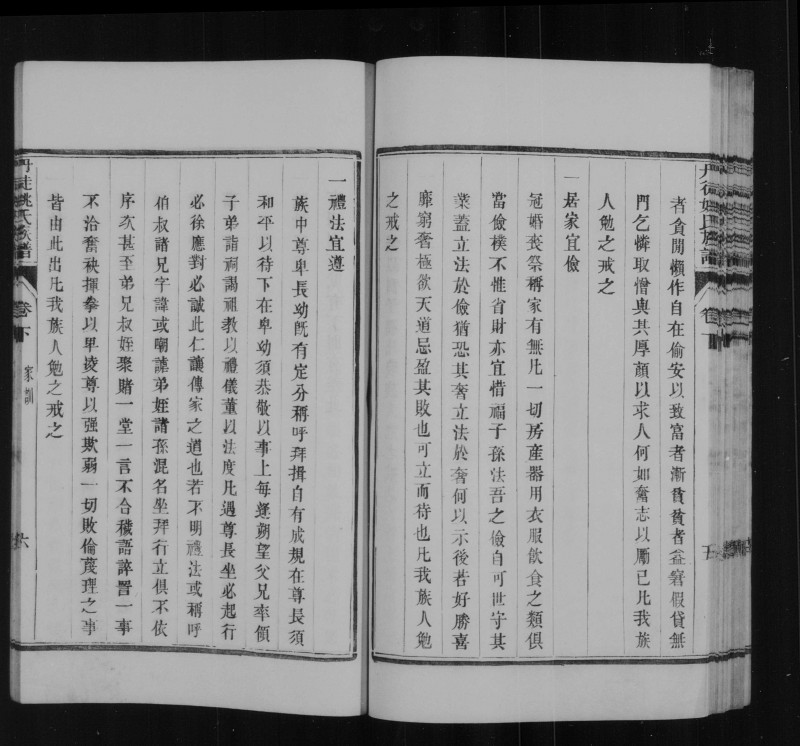 者貪閒懶作自在偷安以致富者漸貧貧者益窘假貸無
門乞憐取憎與其厚顏以求人何如奮志以勵己凡我族
人勉之戒之
一居家宜儉
冠婚喪祭稱家有無凡一切房產器用衣服飲食之類俱
當儉樸不惟省財亦宜惜福子孫法吾之儉自可世守其
業蓋立法於儉猶恐其奢立法於奢何以示後若好勝喜
靡窮奢極欲天道忌盈其敗也可立而待也凡我族人勉
之戒之
一禮法宜遵
族中尊卑長幼既有定分稱呼拜揖自有成規在尊長須
和平以待下在卑幼須恭敬以事上每逢朔望父兄率領
子弟詣祠謁祖教以禮儀董以法度凡遇尊長坐必起行
必徐應對必誠此仁讓傳家之道也若不明禮法或稱呼
伯叔諸兄字諱或嘲謔弟姪諸孫混名坐拜行立俱不依
序次甚至弟兄叔姪聚賭一堂一言不合穢語誶詈一事
不洽奮袂揮拳以卑凌尊以强欺弱一切敗倫蔑理之事
皆由此出凡我族人勉之戒之
丹徒姚氏族譜
卷下
家訓
六